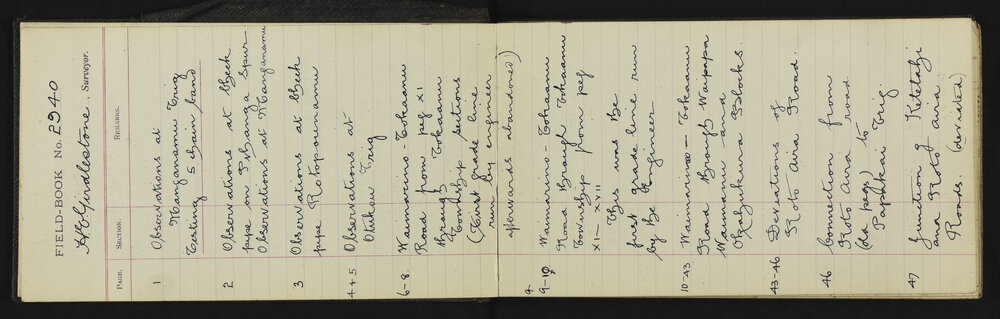 FIELD-BOOK No. 2940
H E Girdlestone, Surveyor.
PAGE. SECTION. REMARKS.
1 Observations at
Manganamu Trig
Testing 5 chain band
2 Observations at Check
pipe on Pihanga Spur
Observations at Manganamu
3 Observations at Check
pipe Rotopounamu
4+5 Observations at
Otukou Trig
6-8 Waimarino-Tokaanu
Road from peg XI
through Tokaanu
Township sections
(First grade line
run by engineer
afterwards abandoned)
9-10 Waimarino-Tokaanu
Road through Tokaanu
Township from peg
XI - XVII
This was the
first grade line run
by the Engineer
10-43 Waimarino-Tokaanu
Road through Waipapa
Waimanu and
Okahukura Blocks.
43-46 Deviations of
Roto Aira Road.
46 Connection from
Roto Aira road
(old pegs) to
Papakai Trig.
47 Junction of Ketetahi
and Roto Aira
Roads. (deviated)